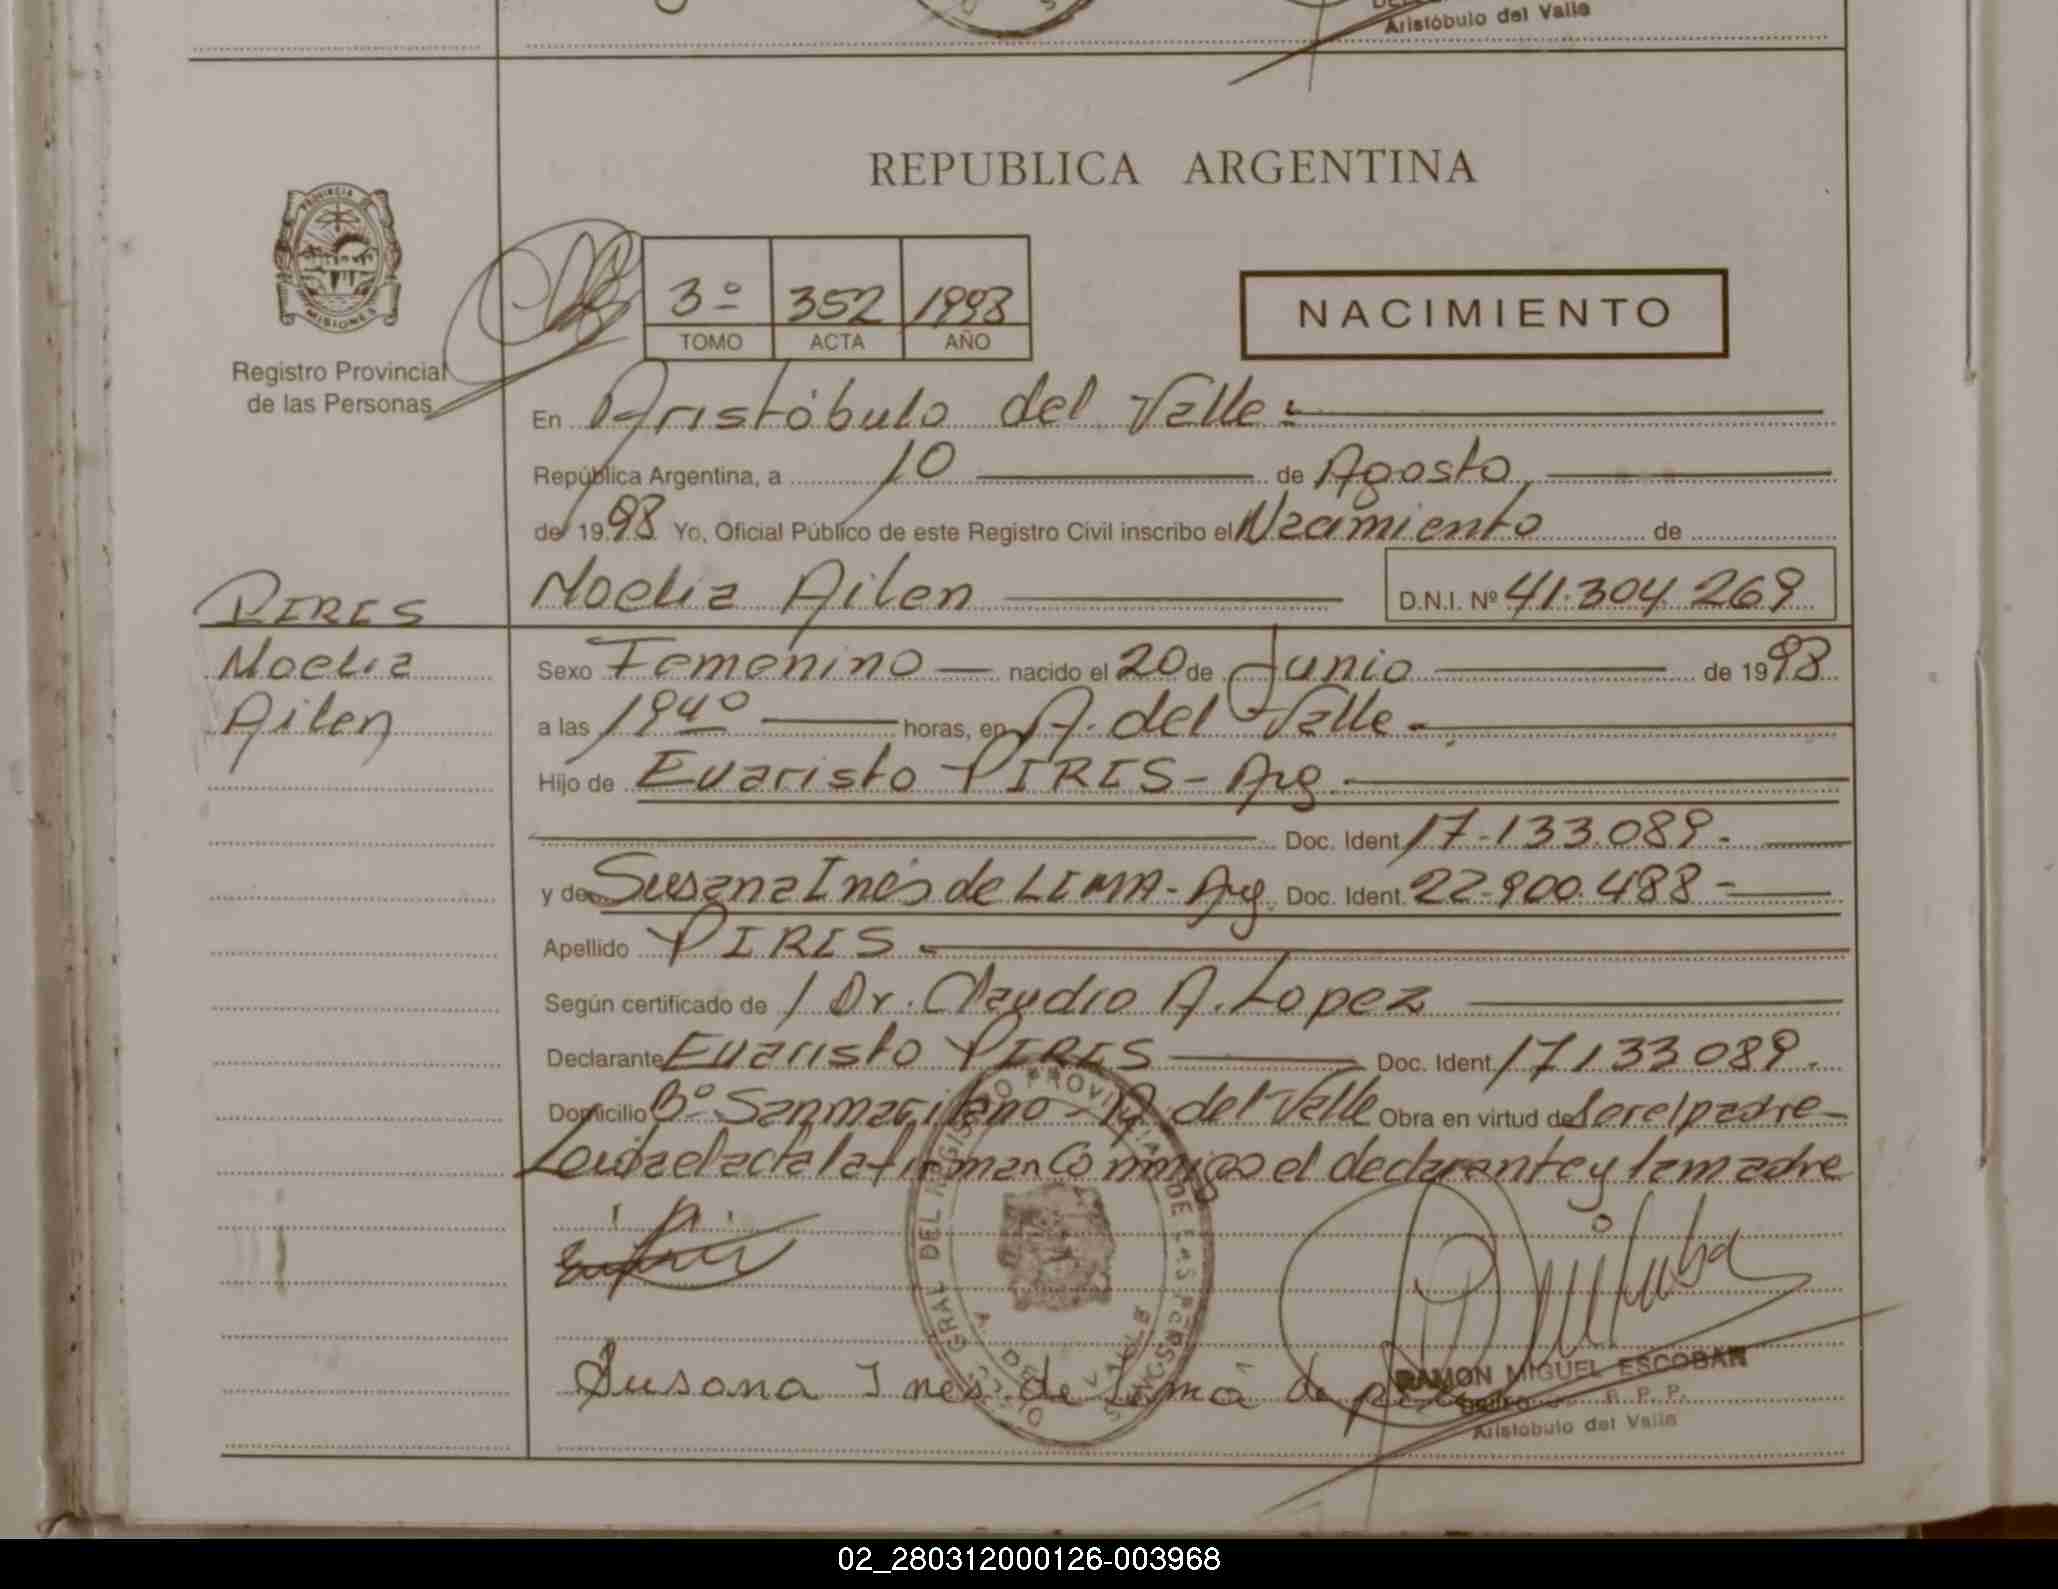 Aristóbulo del Valle
REPUBLICA ARGENTINA
PROVINCIA DE
MISIONES
Registro Provincial
de las Personas
3º 352 1998
TOMO ACTA AÑO
NACIMIENTO
En Aristóbulo del Valle.
República Argentina, a 10 de Agosto
de 1998 Yo, Oficial Público de este Registro Civil inscribo el Nacimiento de
Noelia Ailen D.N.I. Nº 41.304.269
PIRES
Noelia
Ailen
Sexo Femenino nacido el 20 de Junio de 1998
a las 19 40 horas, en A. del Valle.
Hijo de Evaristo PIRES - Arg.
Doc. Ident 17-133.089.
y de Susana Inés de LIMA - Arg. Doc. Ident. 22-900.488 -
Apellido PIRES
Según certificado de Dr. Claudio A. Lopez
Declarante Evaristo PIRES Doc. Ident. 17133089.
Domicilio Bº San maciliano - A. del Valle Obra en virtud de Ser el padre
Leída el acta la firman Conmigo el declarante y la madre
GRAL DEL REGISTRO PROVINCIAL DE LAS PERSONAS
A. DEL VALLE
Susana Ines de Lima de
RAMON MIGUEL ESCOBAR
R. P. P.
Aristóbulo del Valle
02_280312000126-003968